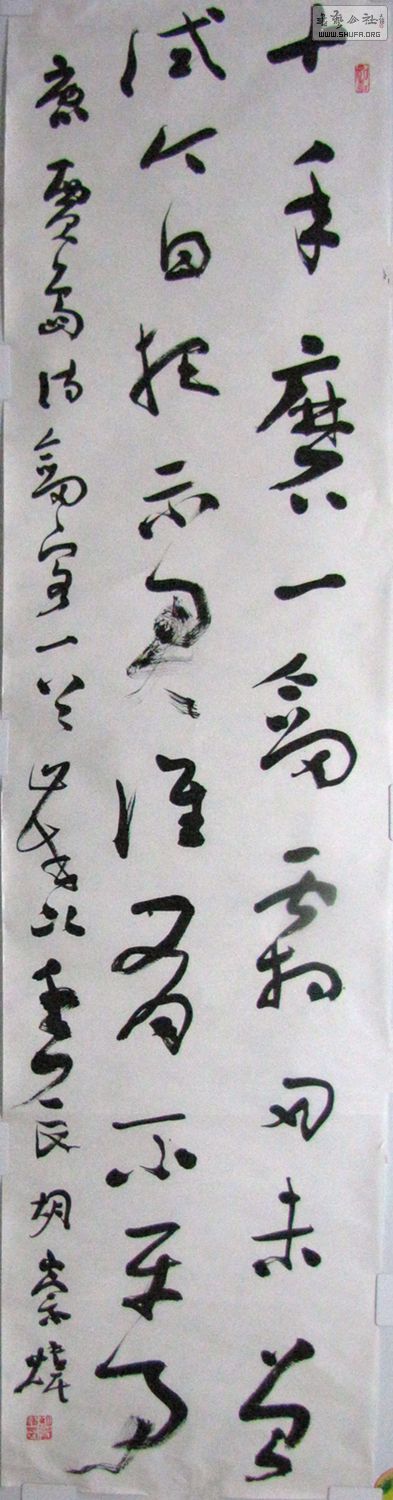 十年磨一劍霜刃未曾
試今日把示君誰有不平事
唐賈島詩劍客一首 胡崇煒
書藝公社
WWW.SHUFA.ORG